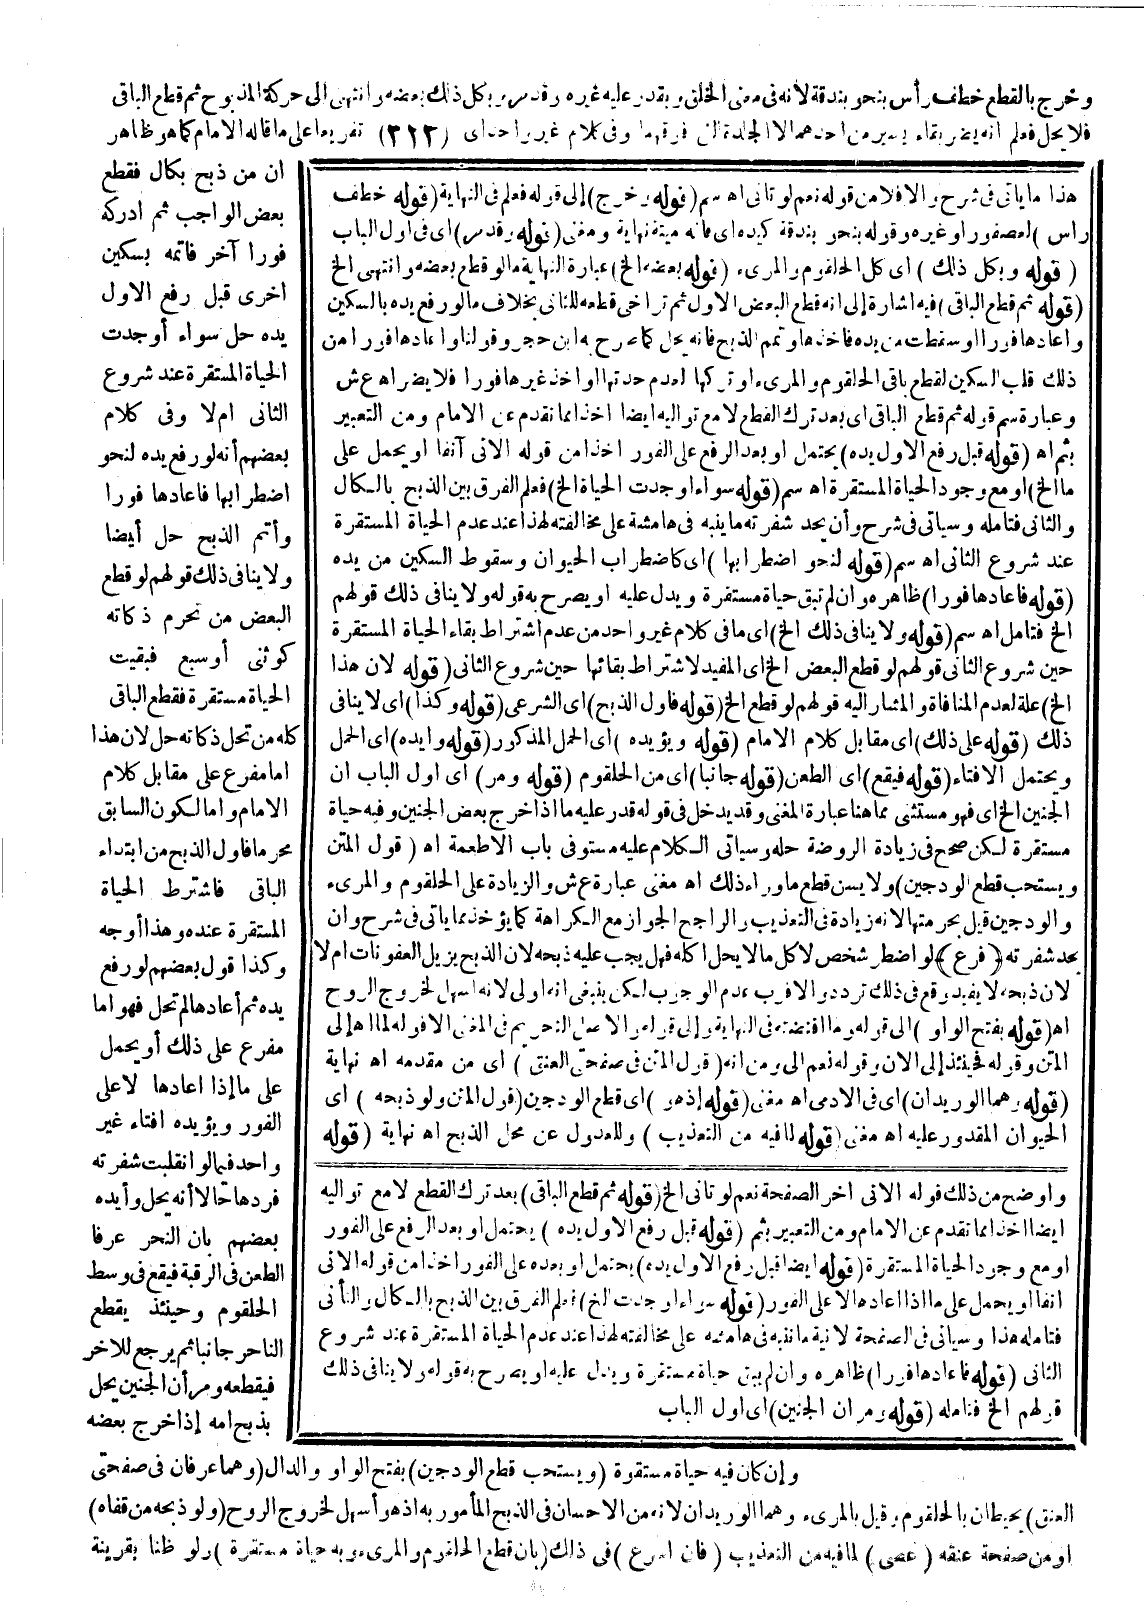 وخرج بالقطع خطف رأس بنحو بندقة لأنه فى معنى الخنق ويقدر عليه غيره وقد مر وبكل ذلك بعضه وانتهى الى حركة المذبوح ثم قطع الباقى
فلا يحل فعلم انه يضر بقاء يسير من احدهما لا الجلدة التى فوقهما وفى كلام غير واحد اى (٣٢٣) تفريعا على ما قاله الامام كما هو ظاهر
ان من ذبح بكال فقطع
بعض الواجب ثم ادركه
فورا آخر فاتمه بسكين
اخرى قبل رفع الاول
يده حل سواء أوجدت
الحياة المستقرة عند شروع
الثانى ام لا وفى كلام
بعضهم أنه لو رفع يده لنحو
اضطرابها فاعادها فورا
وأتم الذبح حل أيضا
ولا ينافى ذلك قولهم لو قطع
البعض من تحرم ذكاته
كوثنى أو سبع فبقيت
الحياة مستقرة فقطع الباقى
كله من تحل ذكاته حل لان هذا
اما مفرع على مقابل كلام
الامام واما لكون السابق
محرما فاول الذبح من ابتداء
الباقى فاشترط الحياة
المستقرة عنده وهذا أوجه
وكذا قول بعضهم لو رفع
يده ثم أعادها لم تحل فهو اما
مفرع على ذلك أو يحمل
على ما إذا اعادها لا على
الفور ويؤيده افتاء غير
واحد فيما لو انقلبت شفرته
فردها حالا أنه يحل وأيده
بعضهم بان النحر عرفا
الطعن فى الرقبة فيقع فى وسط
الحلقوم وحينئذ يقطع
الناحر جانبا ثم يرجع للاخر
فيقطعه ومر أن الجنين يحل
بذبح امه إذا خرج بعضه
هذا ما يأتى فى شرح والا فلا من قوله نعم لو تانى اه سم (قوله وخرج) إلى قوله فعلم فى النهاية (قوله خطف
رأس) لعصفور او غيره وقوله بنحو بندقة كيده اى فانه ميتة نهاية ومغنى (قوله وقد مر) اى فى اول الباب
(قوله وبكل ذلك) اى كل الحلقوم والمرىء (قوله بعضه الخ) عبارة النهاية ما لو قطع بعضه وانتهى الخ
(قوله ثم قطع الباقى) فيه اشارة إلى انه قطع البعض الاول ثم تراخى قطعه للثانى بخلاف ما لو رفع يده بالسكين
واعادها فورا او سقطت من يده فاخذها وتمم الذبح فانه يحل كما صرح به ابن حجر وقولنا واعادها فورا من
ذلك قلب السكين لقطع باقى الحلقوم والمرىء او تركها لعدم حدتها واخذ غيرها فورا فلا يضر اه ع ش
وعبارة سم قوله ثم قطع الباقى اى بعد ترك القطع لا مع تواليه ايضا اخذا مما تقدم عن الامام ومن التعبير
بثم اه (قوله قبل رفع الاول يده) يحتمل او بعد الرفع على الفور اخذا من قوله الاتى آنفا او يحمل على
ما الخ) او مع وجود الحياة المستقرة اه سم (قوله سواء اوجدت الحياة الخ) فعلم الفرق بين الذبح بالكال
والثانى فتامله وسياتى فى شرح وأن يحد شفرته ما ينبه فى هامشه على مخالفته لهذا عند عدم الحياة المستقرة
عند شروع الثانى اه سم (قوله لنحو اضطرابها) اى كاضطراب الحيوان وسقوط السكين من يده
(قوله فاعادها فورا) ظاهره وان لم تبق حياة مستقرة ويدل عليه او يصرح به قوله ولا ينافى ذلك قولهم
الخ فتامل اه سم (قوله ولا ينافى ذلك الخ) اى ما فى كلام غير واحد من عدم اشتراط بقاء الحياة المستقرة
حين شروع الثانى قولهم لو قطع البعض الخ اى المفيد لاشتراط بقائها حين شروع الثانى (قوله لان هذا
الخ) علة لعدم المنافاة والمشار اليه قولهم لو قطع الخ (قوله فاول الذبح) اى الشرعى (قوله وكذا) اى لا ينافى
ذلك (قوله على ذلك) اى مقابل كلام الامام (قوله ويؤيده) اى الحمل المذكور (قوله وايده) اى الحمل
ويحتمل الافتاء (قوله فيقع) اى الطعن (قوله جانبا) اى من الحلقوم (قوله ومر) اى اول الباب ان
الجنين الخ اى فهو مستثنى مما هنا عبارة المغنى وقد يدخل فى قوله قدر عليه ما اذا خرج بعض الجنين وفيه حياة
مستقرة لكن صحح فى زيادة الروضة حله وسياتى الكلام عليه مستوفى باب الاطعمة اه (قول المتن
ويستحب قطع الودجين) ولا يسن قطع ما وراء ذلك اه مغنى عبارة ع ش والزيادة على الحلقوم والمرىء
والودجين قيل بحرمتها لانه زيادة فى التعذيب والراجح الجواز مع الكراهة كما يؤخذ مما ياتى فى شرح وان
يحد شفرته (فرع) لو اضطر شخص لاكل ما لا يحل اكله فهل يجب عليه ذبحه لان الذبح يزيل العفونات ام لا
لان ذبحه لا يفيد وقع فى ذلك تردد والاقرب عدم الوجوب لكن ينبغى انه اولى لانه اسهل لخروج الروح
اه (قوله بفتح الواو) الى قوله وما اقتضته فى النهاية وإلى قوله والاصل التحريم فى المغنى الا قوله لما اه إلى
المتن وقوله فحينئذ إلى الان وقوله نعم الى ومن انه (قول المتن فى صفحتى العنق) اى من مقدمه اه نهاية
(قوله وهما الوريدان) اى فى الادمى اه مغنى (قوله إذ هو) اى قطع الودجين (قول المتن ولو ذبحه) اى
الحيوان المقدور عليه اه مغنى (قوله لما فيه من التعذيب) وللعدول عن محل الذبح اه نهاية (قوله
واوضح من ذلك قوله الاتى اخر الصفحة نعم لو تانى الخ (قوله ثم قطع الباقى) بعد ترك القطع لا مع تواليه
ايضا اخذا مما تقدم عن الامام ومن التعبير بثم (قوله قبل رفع الاول يده) يحتمل او بعد الرفع على الفور
او مع وجود الحياة المستقرة (قوله ايضا قبل رفع الاول يده) يحتمل او بعده على الفور اخذا من قوله الاتى
انفا او يحمل على ما اذا اعادها لا على الفور (قوله سواء اوجدت الخ) فعلم الفرق بين الذبح بالكال والتأنى
فتامله هذا وسياتى فى الصفحة لاتية ما ننبه فى هامشه على مخالفته لهذا عند عدم الحياة المستقرة عند شروع
الثانى (قوله فاعادها فورا) ظاهره وان لم يبق حياة مستقرة ويدل عليه او يصرح به قوله ولا ينافى ذلك
قولهم الخ فتامله (قوله ومر ان الجنين) اى اول الباب
وإن كان فيه حياة مستقرة (ويستحب قطع الودجين) بفتح الواو والدال (وهما عرقان فى صفحتى
العنق) يحيطان بالحلقوم وقيل بالمرىء وهما الوريدان لانه من الاحسان فى الذبح المأمور به اذ هو أسهل لخروج الروح (ولو ذبحه من قفاه)
او من صفحة عنقه (عصى) لما فيه من التعذيب (فان اسرع) فى ذلك (بان قطع الحلقوم والمرىء وبه حياة مستقرة) ولو ظنا بقرينة